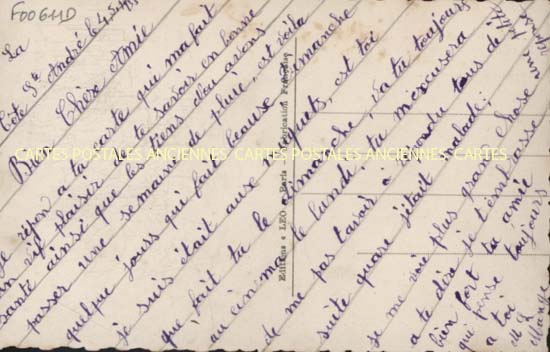 F00611D
La
Côte St André le
Bien Chère Amie
Je répon a ta carte qui ma fait
un vif plaisir de te savoir en bonne
santé ainsé que les tiens nous avons
passer une semaine de pluie, est voila
quelque jours qui fait beause dimanche
je suis était aux est toi
que fait tu le dimanche, va tu toujours
au cinema le lundi, tu m'excusera
de me pas t'avoir répondu tous de
suite quare j'était malade;
je me voie plus grand chose
a te dire je t'embrasse
bien fort ta amie
qui pense toujours
a toi
CARTES POSTALES ANCIENNES CARTES POSTALES ANCIENNES CARTES POSTALES ANCIENNES
Editions « LEO » Paris - Fabrication Française